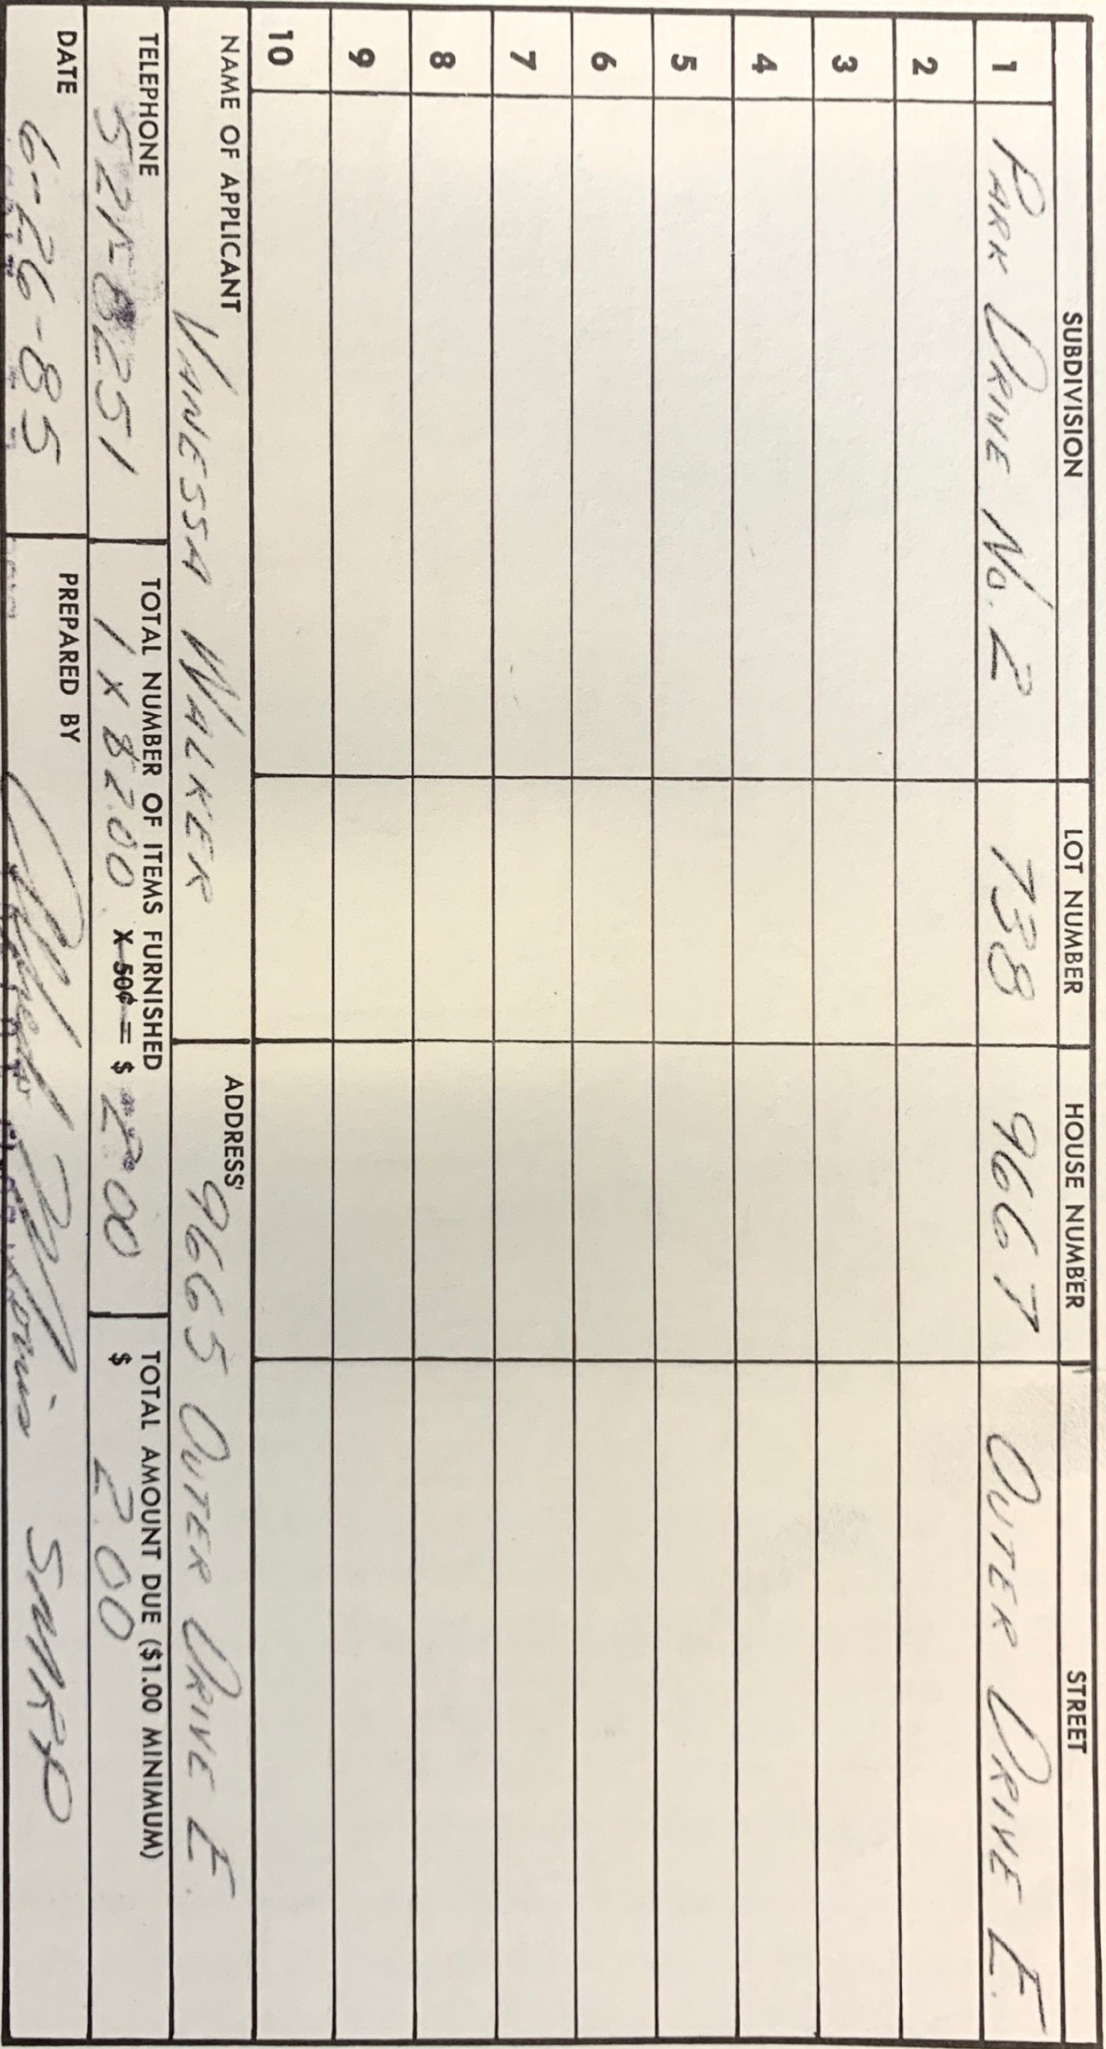 SUBDIVISION LOT NUMBER HOUSE NUMBER STREET
1 PARK DRIVE No. 2 738 9667 OUTER DRIVE E.
2
3
4
5
6
7
8
9
10
NAME OF APPLICANT VANESSA WALKER ADDRESS 9665 OUTER DRIVE E.
TELEPHONE TOTAL NUMBER OF ITEMS FURNISHED TOTAL AMOUNT DUE ($1.00 MINIMUM)
1 X $2.00 X 50¢ = $ 2.00 $ 2.00
DATE 6-26-85 PREPARED BY